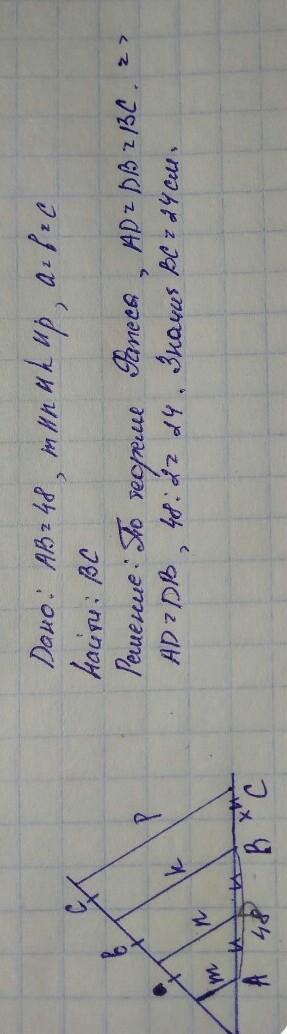 Дано: AB=48, m ll n ll k ll p, a=b=c
Найти: BC
Решение: По теореме Фалеса, AD=DB=BC. =>
AD=DB, 48:2=24. Значит BC=24см.
c
p
b
k
n
m
x
C
B
D
48
A